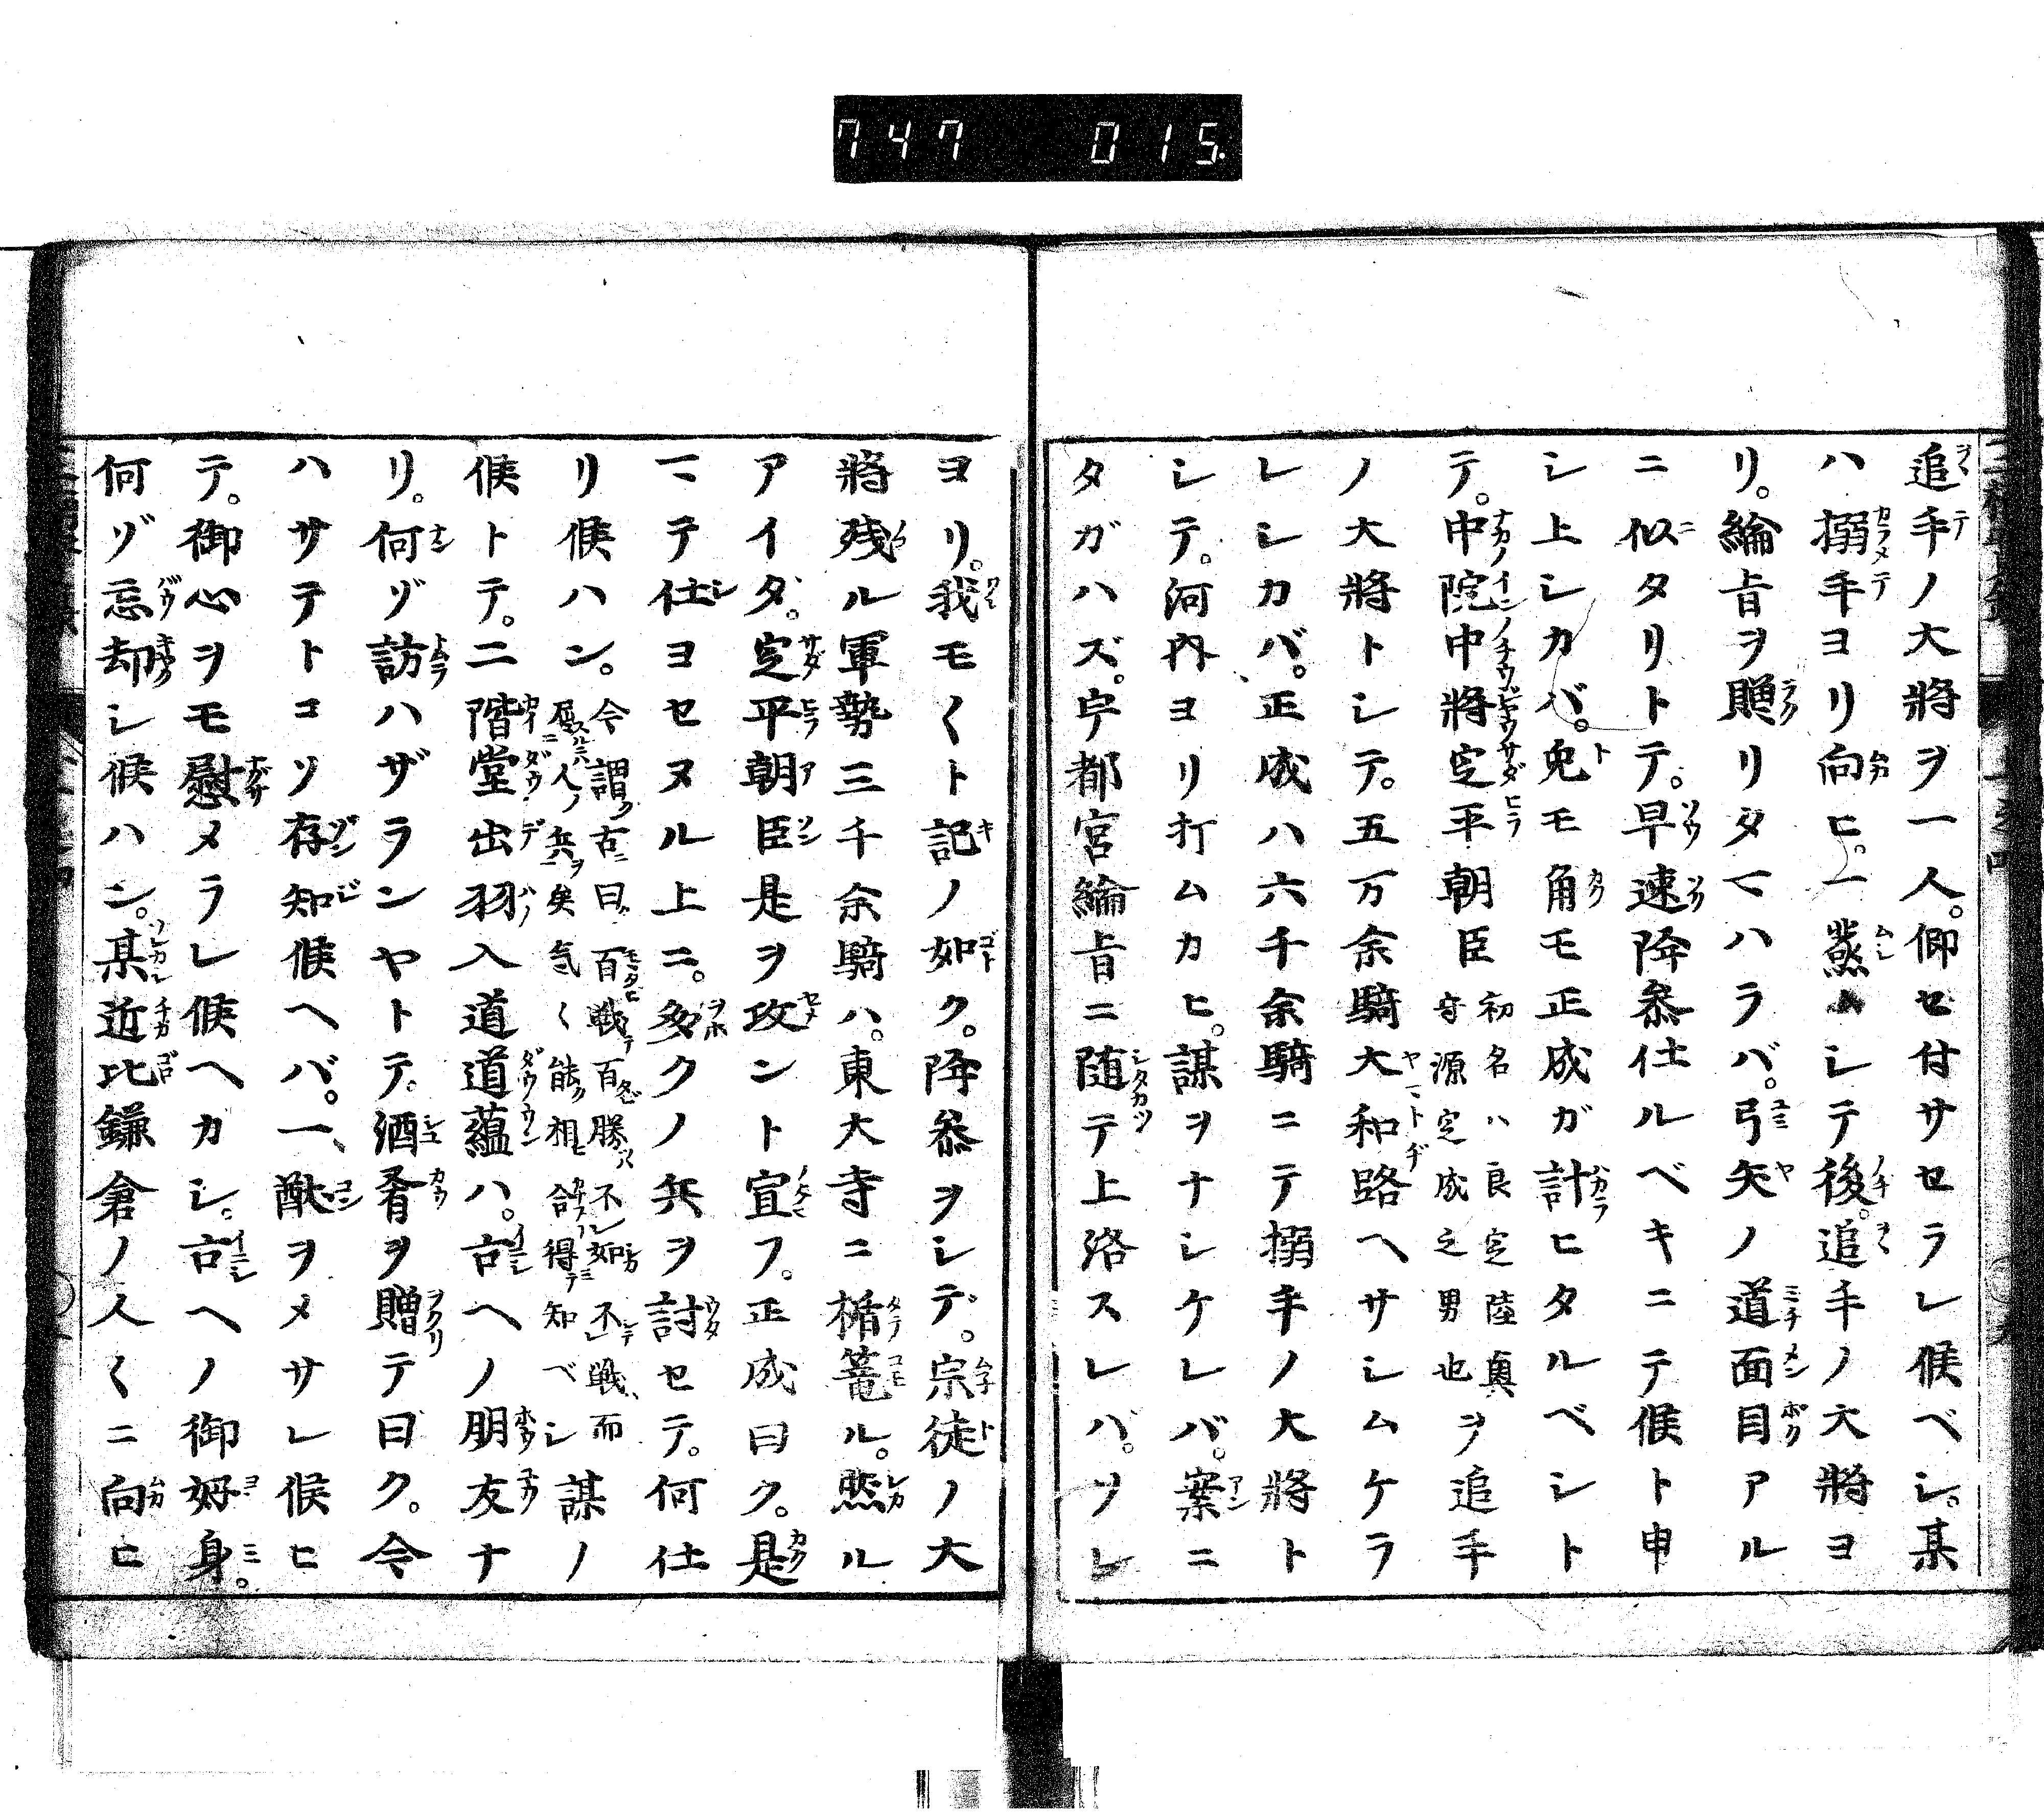 747 015.
追手ノ大將ヲ一人。仰セ付サセラレ候ベシ。某
ハ搦手ヨリ向ヒ。一蒸ムシテ後。追手ノ大將ヨ
リ。綸旨ヲ贈リタマハラバ。弓矢ノ道面目アル
ニ似タリトテ。早速降參仕ルベキニテ候ト申
シ上シカバ。兎モ角モ正成ガ計ヒタルベシト
テ。中院中將定平朝臣初名ハ良定陸奥守源定成之男也ヲ追手
ノ大將トシテ。五万余騎大和路ヘサシムケラ
レシカバ。正成ハ六千余騎ニテ搦手ノ大將ト
シテ。河内ヨリ打ムカヒ。謀ヲナシケレバ。案ニ
タガハズ。宇都宮綸旨ニ随テ上洛スレバ。ソレ
ヨリ。我モ〱ト記ノ如ク。降參ヲシテ。宗徒ノ大
將残ル軍勢三千余騎ハ。東大寺ニ楯篭ル。然ル
アイダ。定平朝臣是ヲ攻ント宣フ。正成曰ク。是
マテ仕ヨセヌル上ニ。多クノ兵ヲ討セテ。何仕
リ候ハン。今謂フ古ニ曰百戦テ百勝ハ不如不戦而屈スルニハ人ノ兵ヲ矣気〱能相合得テ知ベシ謀ノ
候トテ。二階堂出羽入道道蘊ハ。古ヘノ朋友ナ
リ。何ゾ訪ハザランヤトテ。酒肴ヲ贈テ曰ク。今
ハサテトコソ存知候ヘバ。一献ヲメサレ候ヒ
テ。御心ヲモ慰メラレ候ヘカシ。古ヘノ御好身。
何ゾ忘却シ候ハン。某近比鎌倉ノ人〱ニ向ヒ